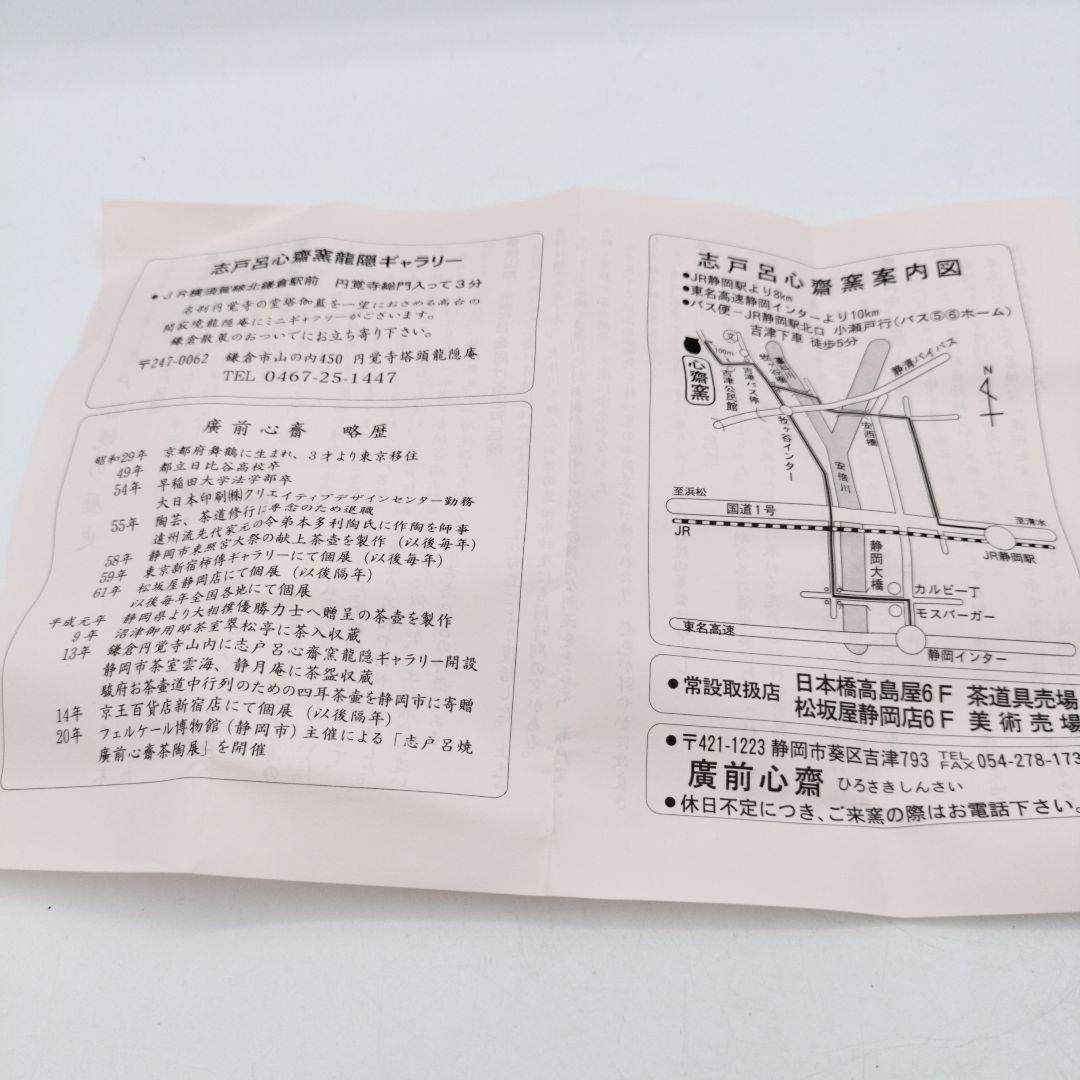 志戸呂心齋窯龍隠ギャラリー
●JR横須賀線北鎌倉駅前 円覚寺総門入って3分
名刹円覚寺の堂塔伽藍を一望におさめる高台の
閑寂境龍隠庵にミニギャラリーがございます。
鎌倉散策のおついでにお立ち寄り下さい。
〒247-0062 鎌倉市山の内450 円覚寺塔頭龍隠庵
TEL 0467-25-1447
廣前心齋 略歴
昭和29年 京都府舞鶴に生まれ、3才より東京移住
49年 都立日比谷高校卒
54年 早稲田大学法学部卒
大日本印刷㈱クリエイティブデザインセンター勤務
55年 陶芸、茶道修行に専念のため退職
遠州流先代家元の令弟本多利陶氏に作陶を師事
58年 静岡市東照宮大祭の献上茶壺を製作(以後毎年)
59年 東京新宿柿傳ギャラリーにて個展(以後毎年)
61年 松坂屋静岡店にて個展(以後隔年)
以後毎年全国各地にて個展
平成元年 静岡県より大相撲優勝力士へ贈呈の茶壺を製作
9年 沼津御用邸茶室翠松亭に茶入収蔵
13年 鎌倉円覚寺山内に志戸呂心齋窯龍隠ギャラリー開設
静岡市茶室雲海、静月庵に茶盌収蔵
駿府お茶壺道中行列のための四耳茶壺を静岡市に寄贈
14年 京王百貨店新宿店にて個展(以後隔年)
20年 フェルケール博物館(静岡市)主催による「志戸呂焼
廣前心齋茶陶展」を開催
志戸呂心齋窯案内図
●JR静岡駅より8km
●東名高速静岡インターより10km
●バス便−JR静岡駅北口 小瀬戸行(バス⑤⑥ホーム)
吉津下車 徒歩5分
心齋窯
100m
文
吉津公民館
吉津バス停
牧ヶ谷橋
藁科川
牧ヶ谷インター
静清バイパス
安西橋
安倍川
N
至浜松
国道1号
JR
至清水
JR静岡駅
静岡大橋
カルビー丁
モスバーガー
東名高速
静岡インター
●常設取扱店 日本橋高島屋6F 茶道具売場
松坂屋静岡店6F 美術売場
●〒421-1223 静岡市葵区吉津793 TEL FAX 054-278-173
廣前心齋 ひろさきしんさい
●休日不定につき、ご来窯の際はお電話下さい。